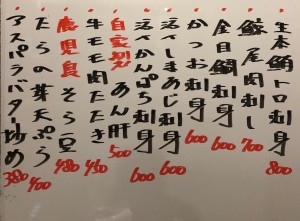 生本鮪トロ刺身 800
鯨尾肉刺し 700
金目鯛刺身 600
かつお刺身 600
活〆しまあじ刺身 600
活〆かんぱち刺身 600
自家製あん肝 500
牛モモ肉たたき 450
鹿児島そら豆 480
たらの芽天ぷら 400
アスパラバター炒め 380